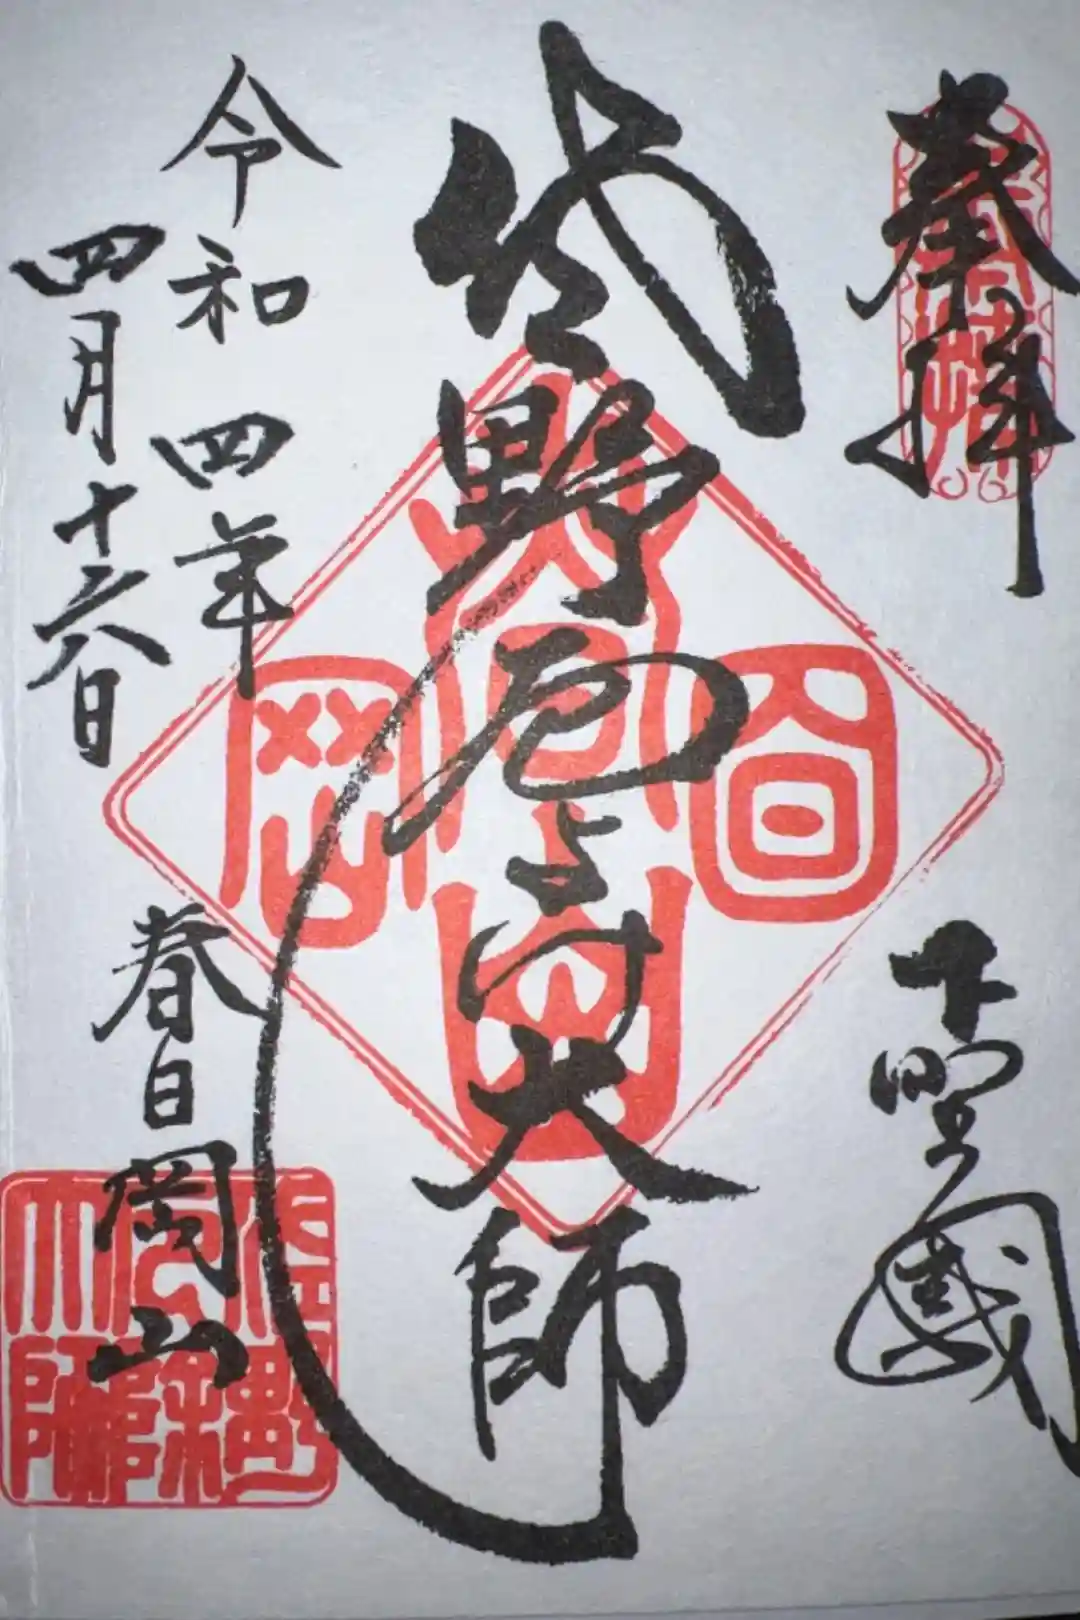 奉拝
下野國
佐野厄よけ大師
令和四年
四月十六日
春日岡山